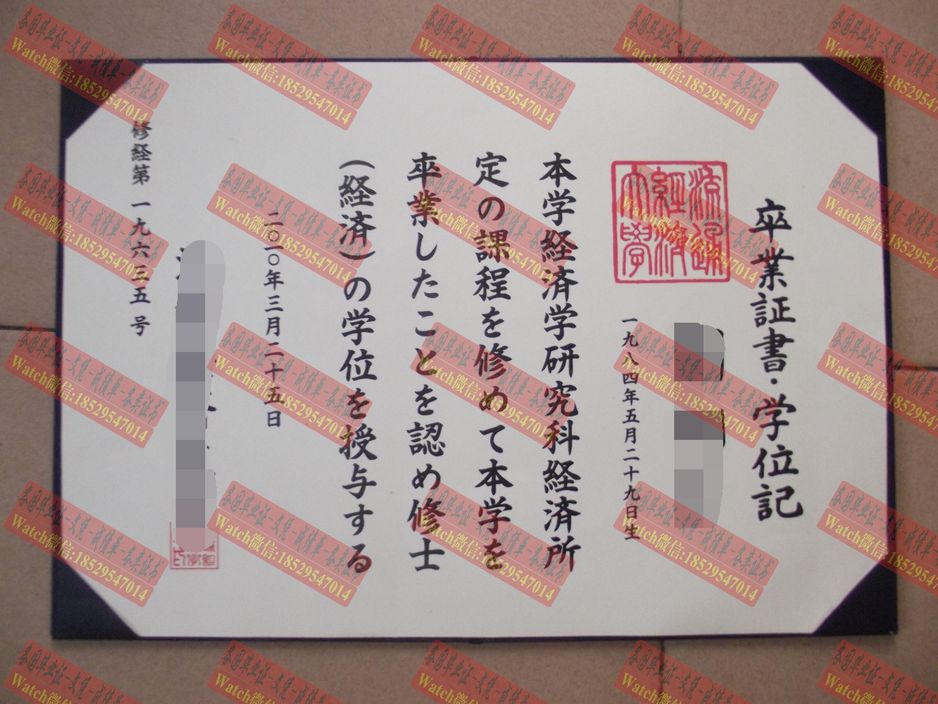 卒業証書・学位記
流通經濟大學
一九八四年五月二十九日生
本学経済学研究科経済所
定の課程を修めて本学を
卒業したことを認め修士
(経済)の学位を授与する
二〇一〇年三月二十五日
修経第一九六三五号
Watch微信:18529547014